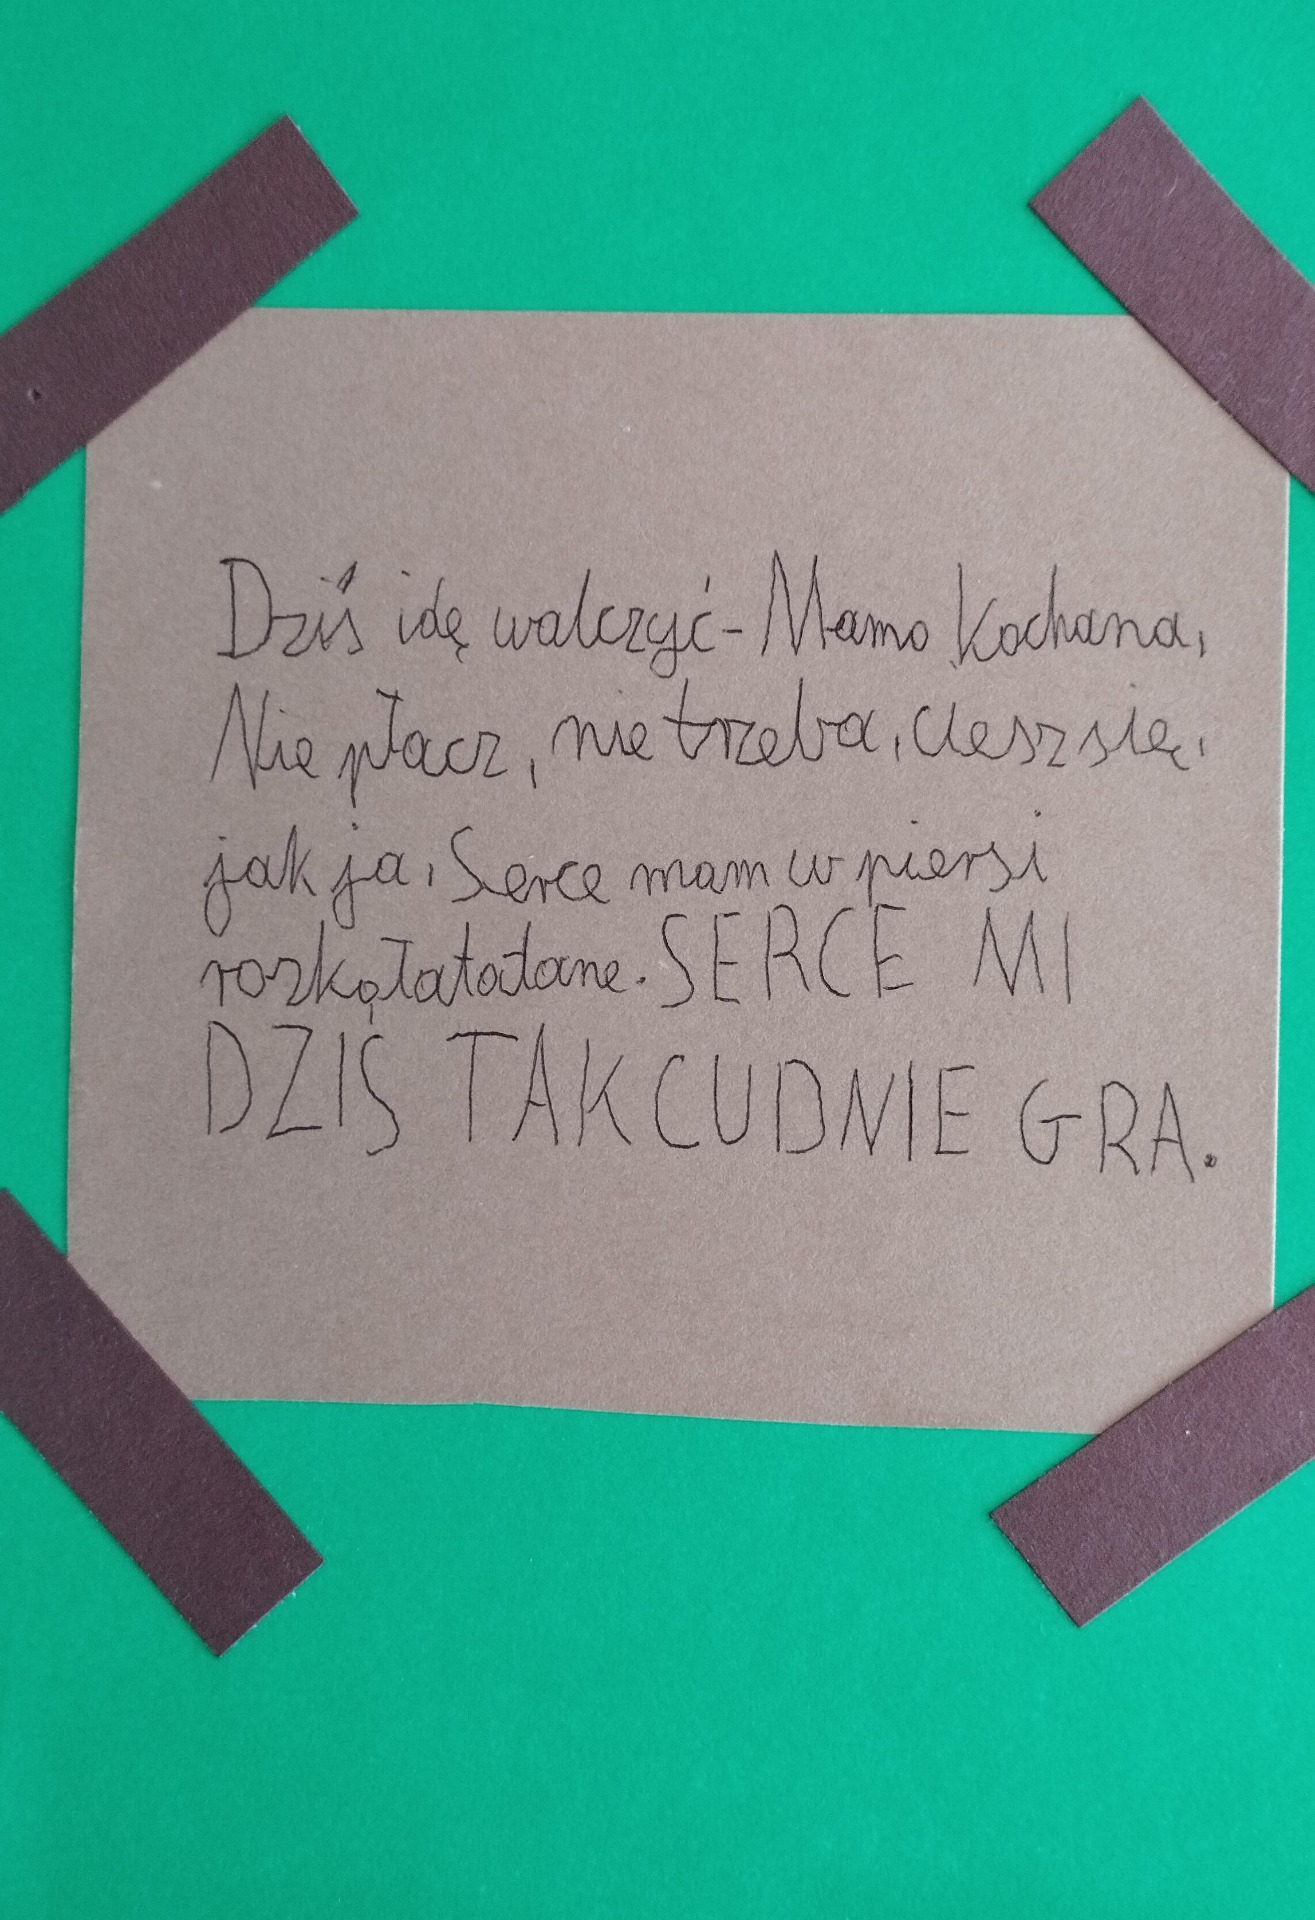 Dziś idę walczyć - Mamo Kochana,
Nie płacz, nie trzeba, ciesz się,
jak ja, Serce mam w piersi
rozkołatałane. SERCE MI
DZIŚ TAK CUDNIE GRA.